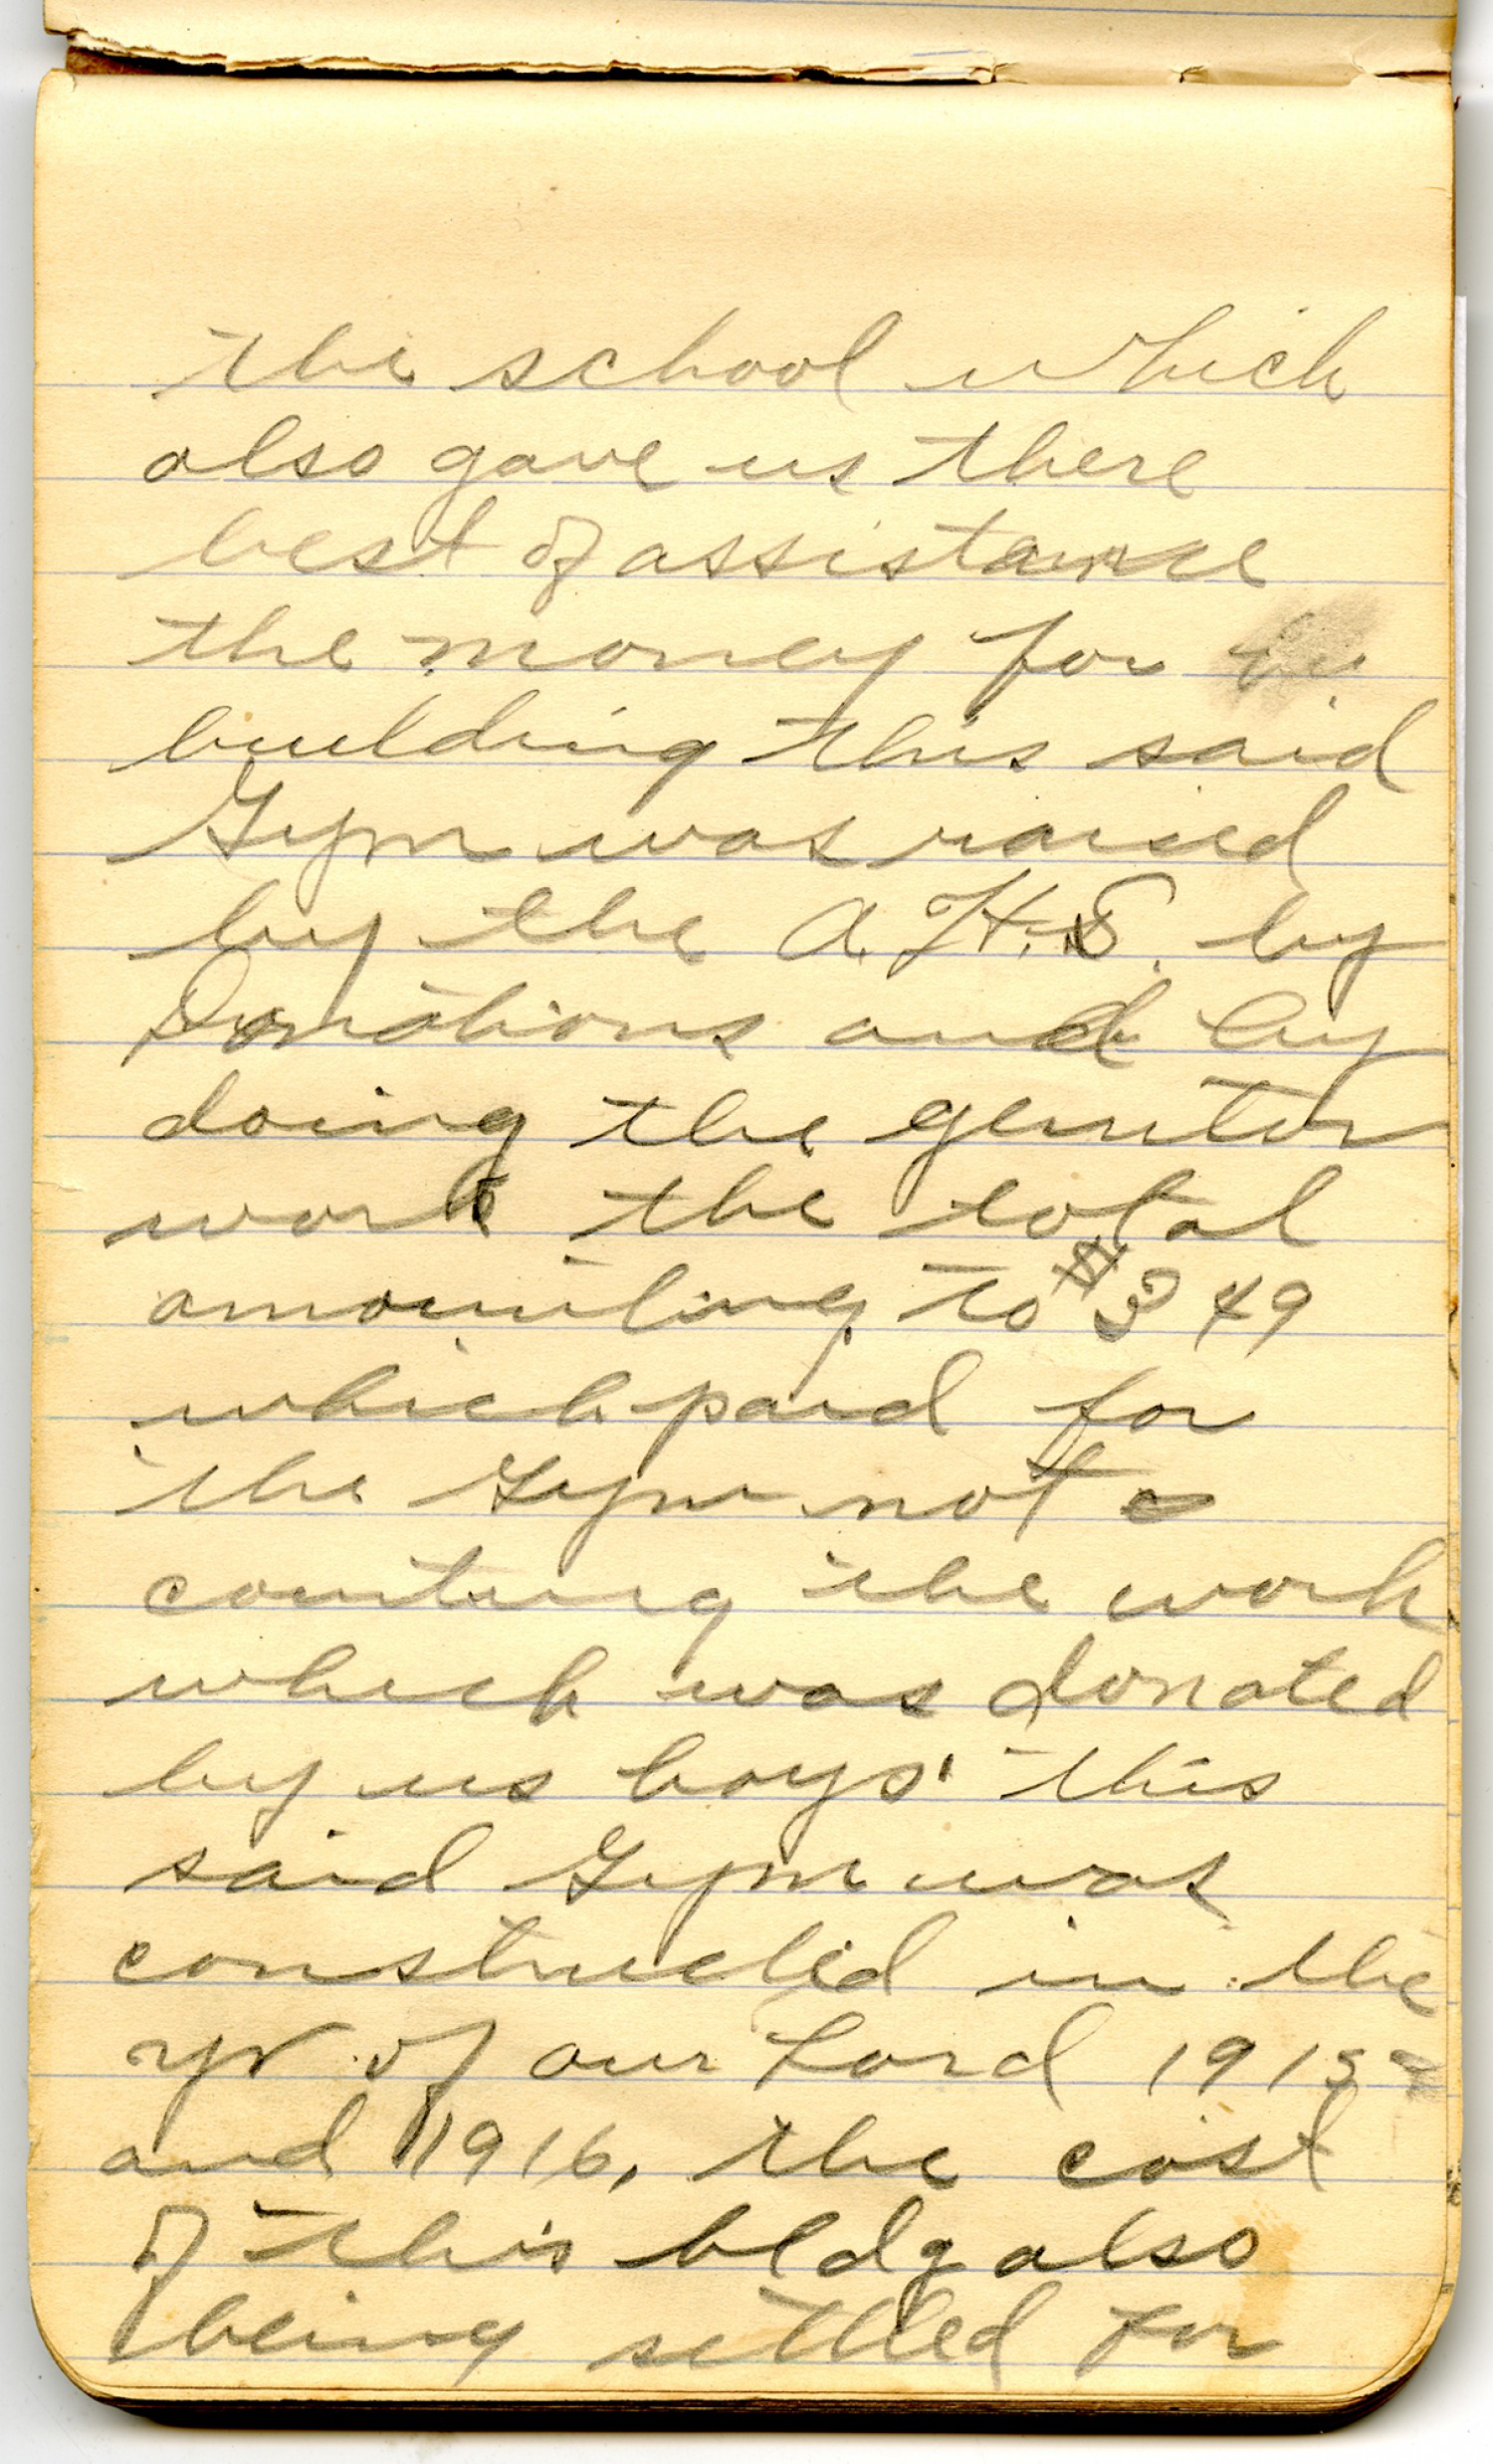 the school which
also gave us there
best of assistance
the money for
building this said
Gym was raised
by the A.H.S. by
Donations and by
doing the genitor
work the total
amounting to $349
which paid for
the Gym not
counting the work
which was donated
by us boys' this
said Gym was
constructed in the
yr of our Lord 1915
and 1916, the cost
of this bldg also
being settled for